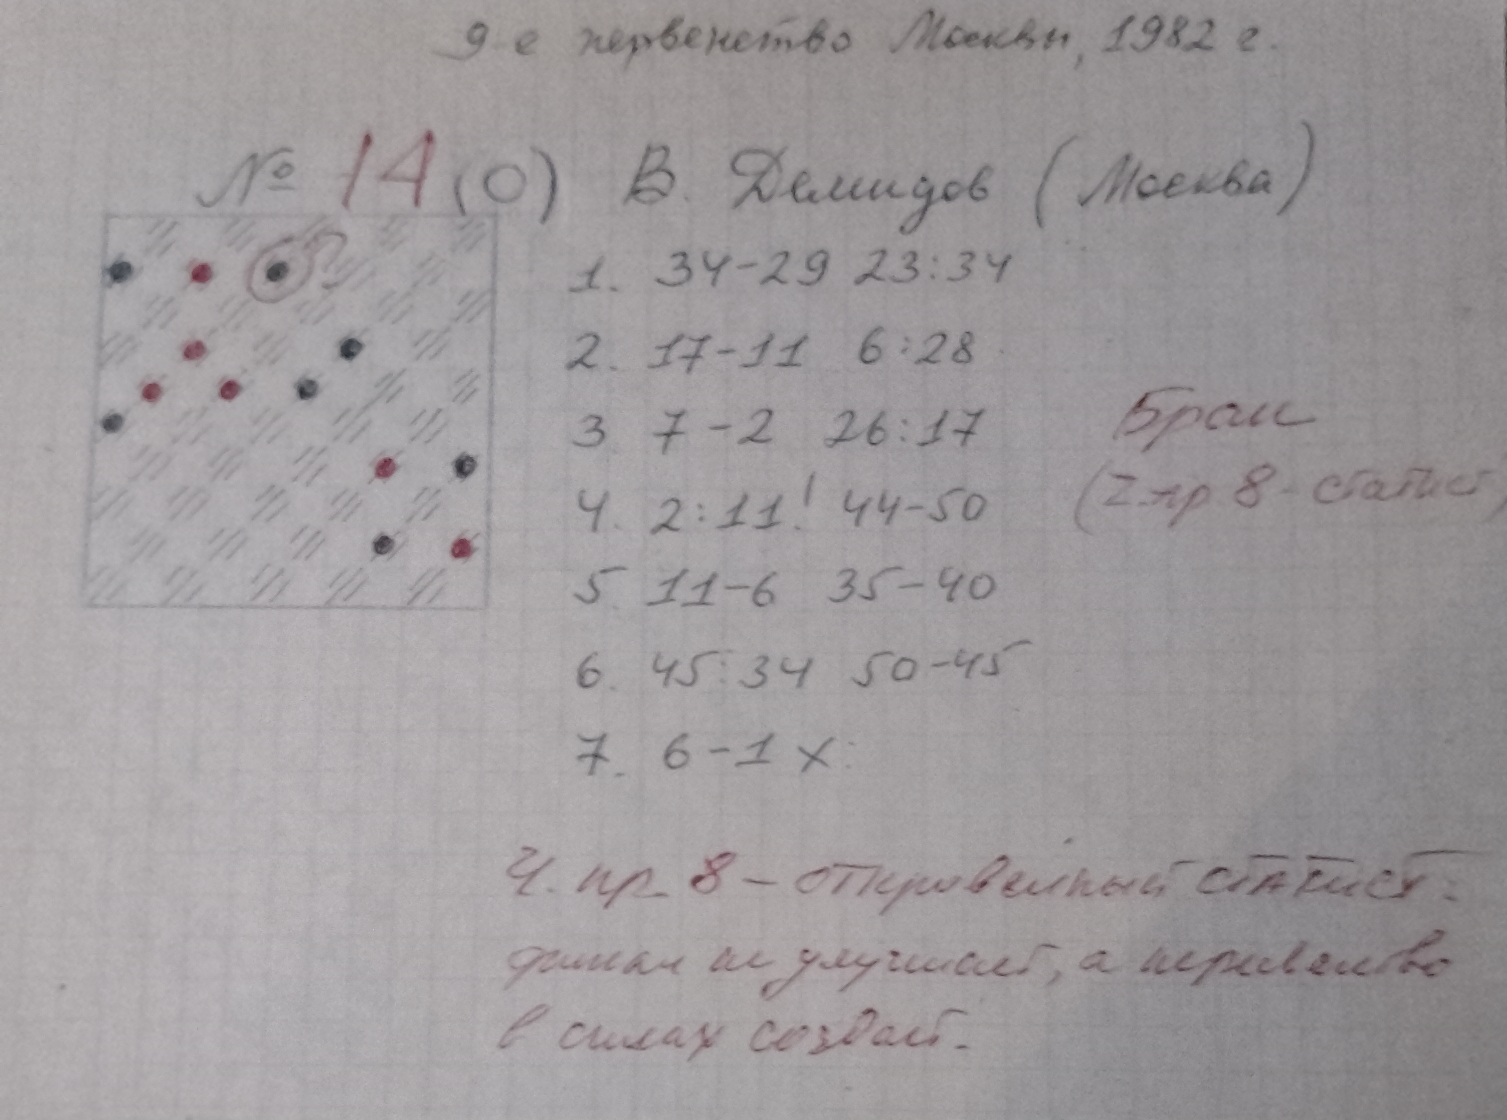 9-е первенство Москвы, 1982 г.
№ 14 (0) В. Демидов (Москва)
1. 34-29 23:34
2. 17-11 6:28
3 7-2 26:17
4. 2:11! 44-50
5. 11-6 35-40
6. 45:34 50-45
7. 6-1 х.
Брак
(2. пр 8 - статист)
Ч. пр. 8 - откровенный статист:
финал не улучшает, а неравенство
в силах создаёт.